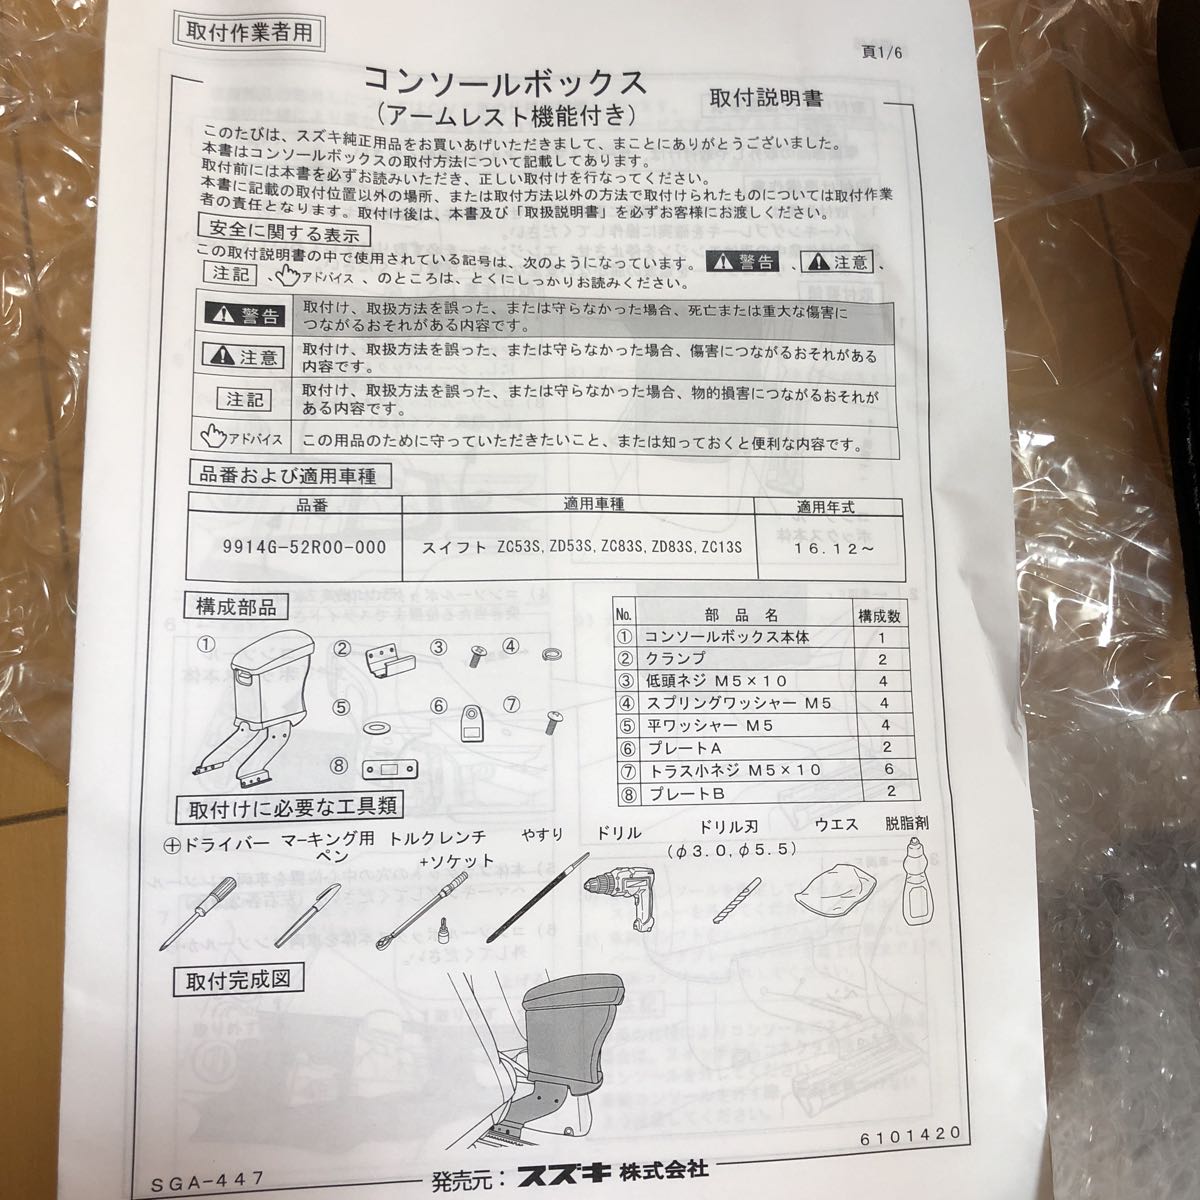 取付作業者用
頁1/6
コンソールボックス
(アームレスト機能付き)
取付説明書
このたびは、スズキ純正用品をお買いあげいただきまして、まことにありがとうございました。
本書はコンソールボックスの取付方法について記載してあります。
取付前には本書を必ずお読みいただき、正しい取付けを行なってください。
本書に記載の取付位置以外の場所、または取付方法以外の方法で取付けられたものについては取付作業
者の責任となります。取付け後は、本書及び「取扱説明書」を必ずお客様にお渡しください。
安全に関する表示
この取付説明書の中で使用されている記号は、次のようになっています。 警告 、 注意 、
注記 、 アドバイス 、のところは、とくにしっかりお読みください。
警告 取付け、取扱方法を誤った、または守らなかった場合、死亡または重大な傷害に
つながるおそれがある内容です。
注意 取付け、取扱方法を誤った、または守らなかった場合、傷害につながるおそれがある
内容です。
注記 取付け、取扱方法を誤った、または守らなかった場合、物的損害につながるおそれが
ある内容です。
アドバイス この用品のために守っていただきたいこと、または知っておくと便利な内容です。
品番および適用車種
品番 適用車種 適用年式
9914G-52R00-000 スイフト ZC53S, ZD53S, ZC83S, ZD83S, ZC13S 16.12~
構成部品
① ② ③ ④
⑤ ⑥ ⑦
⑧
No. 部品名 構成数
① コンソールボックス本体 1
② クランプ 2
③ 低頭ネジ M5×10 4
④ スプリングワッシャー M5 4
⑤ 平ワッシャー M5 4
⑥ プレートA 2
⑦ トラス小ネジ M5×10 6
⑧ プレートB 2
取付けに必要な工具類
⊕ドライバー マーキング用
ペン トルクレンチ
+ソケット やすり ドリル ドリル刃
(φ3.0, φ5.5) ウエス 脱脂剤
取付完成図
6101420
SGA-447
発売元: スズキ 株式会社